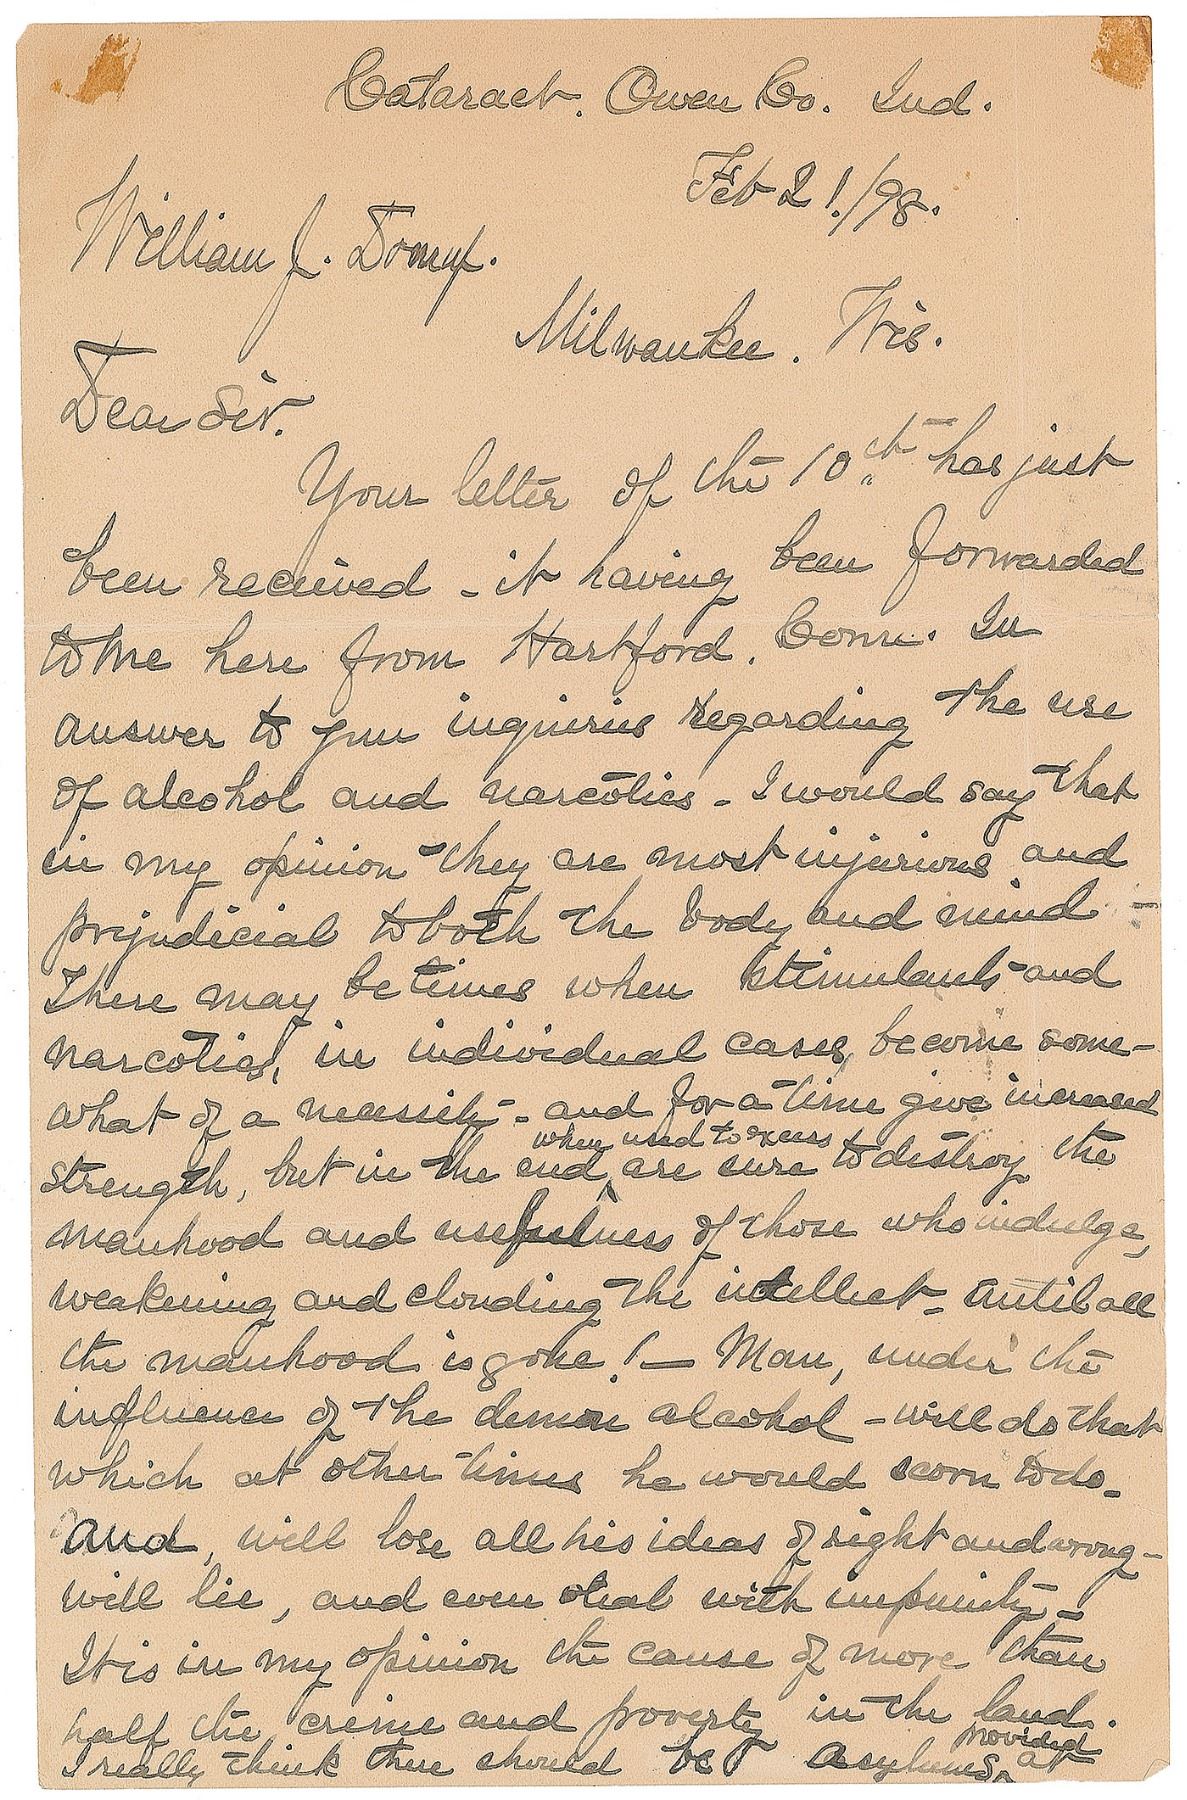 Cataract. Owen Co. Ind.
Feb 21./98.
William J.
Milwaukee. Wis.
Dear Sir.
Your letter of the 10th has just
been received - it having been forwarded
to me here from Hartford. Conn. In
answer to your inquiries regarding the use
of alcohol and narcotics - I would say that
in my opinion they are most injurious and
prejudicial to both the body and mind -
There may be times when stimulants and
narcotics, in individual cases, become some-
what of a necessity - and for a time give increased
when used to excess
strength, but in the end are sure to destroy the
manhood and usefulness of those who indulge,
weakening and clouding the intellect - until all
the manhood is gone! - Man, under the
influence of the demon alcohol - will do that
which at other times he would scorn to do -
and, will lose all his ideas of right and wrong -
will lie, and even steal with impunity -
It is in my opinion the cause of more than
half the crime and poverty in the land.
provided
I really think there should be asylums at